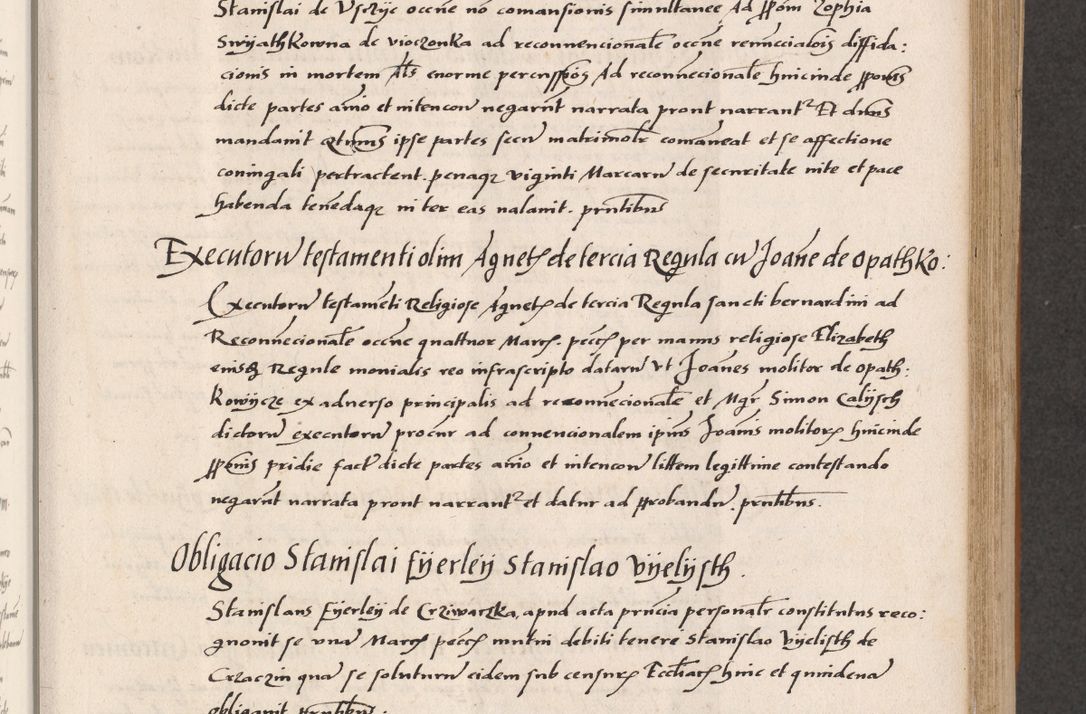 Stanislai de Usczije occne no comansionis simultanee Ad ppom Zophia
Swijathkowna de vioczonka ad reconnencionale occne renunciatois diffida:
cionis in mortem Als enorme percussios Ad reconnecionale hincinde ppones
dicte partes animo et intencon negarunt narrata pront narrantr Et dnus
mandavit ipse partes secum matrimolr comaneat et se affectione
coniugali pertractent. penaqz viginti Marcarum de securitate vite et pace
habenda tenedaqz inter eas valavit. prntibus
Executorum testamenti olim Agnetis de tercia Regula cum Joane de Opathko:
Executorum testameti Religiose Agnetis de tercia Regula sancti bernardini ad
Reconnecionale occne quattuor Marcis. pecce per manus religiose Elizabeth
eiusdem Regule monialis reo infrascripto datarum Vt Joanes molitor de Opath:
Kowijcze ex adverso principalis ad reconnecionale et Mgr Simon Calijsch
dictorum executorum procur ad connencionalem ipius Joanis molitoris hincinde
pponis pridie fact dicte partes animo et intencon littem legittime contestando
negarunt narrata pront narrantr et datur ad pprobandum. prntibus.
Obligacio Stanislai Fijerleij Stanislao Vijelijsth.
Stanislaus Fijerleij de Crziwarzka, apud acta prncia personalr constitutus reco:
gnovit se vna Marcis pecce mutui debiti tenere Stanislao Vijelisth de
Crzaczin quam se soluturum eidem sub censuris Eccliarum hinc et quindena
obligavit prntibus: